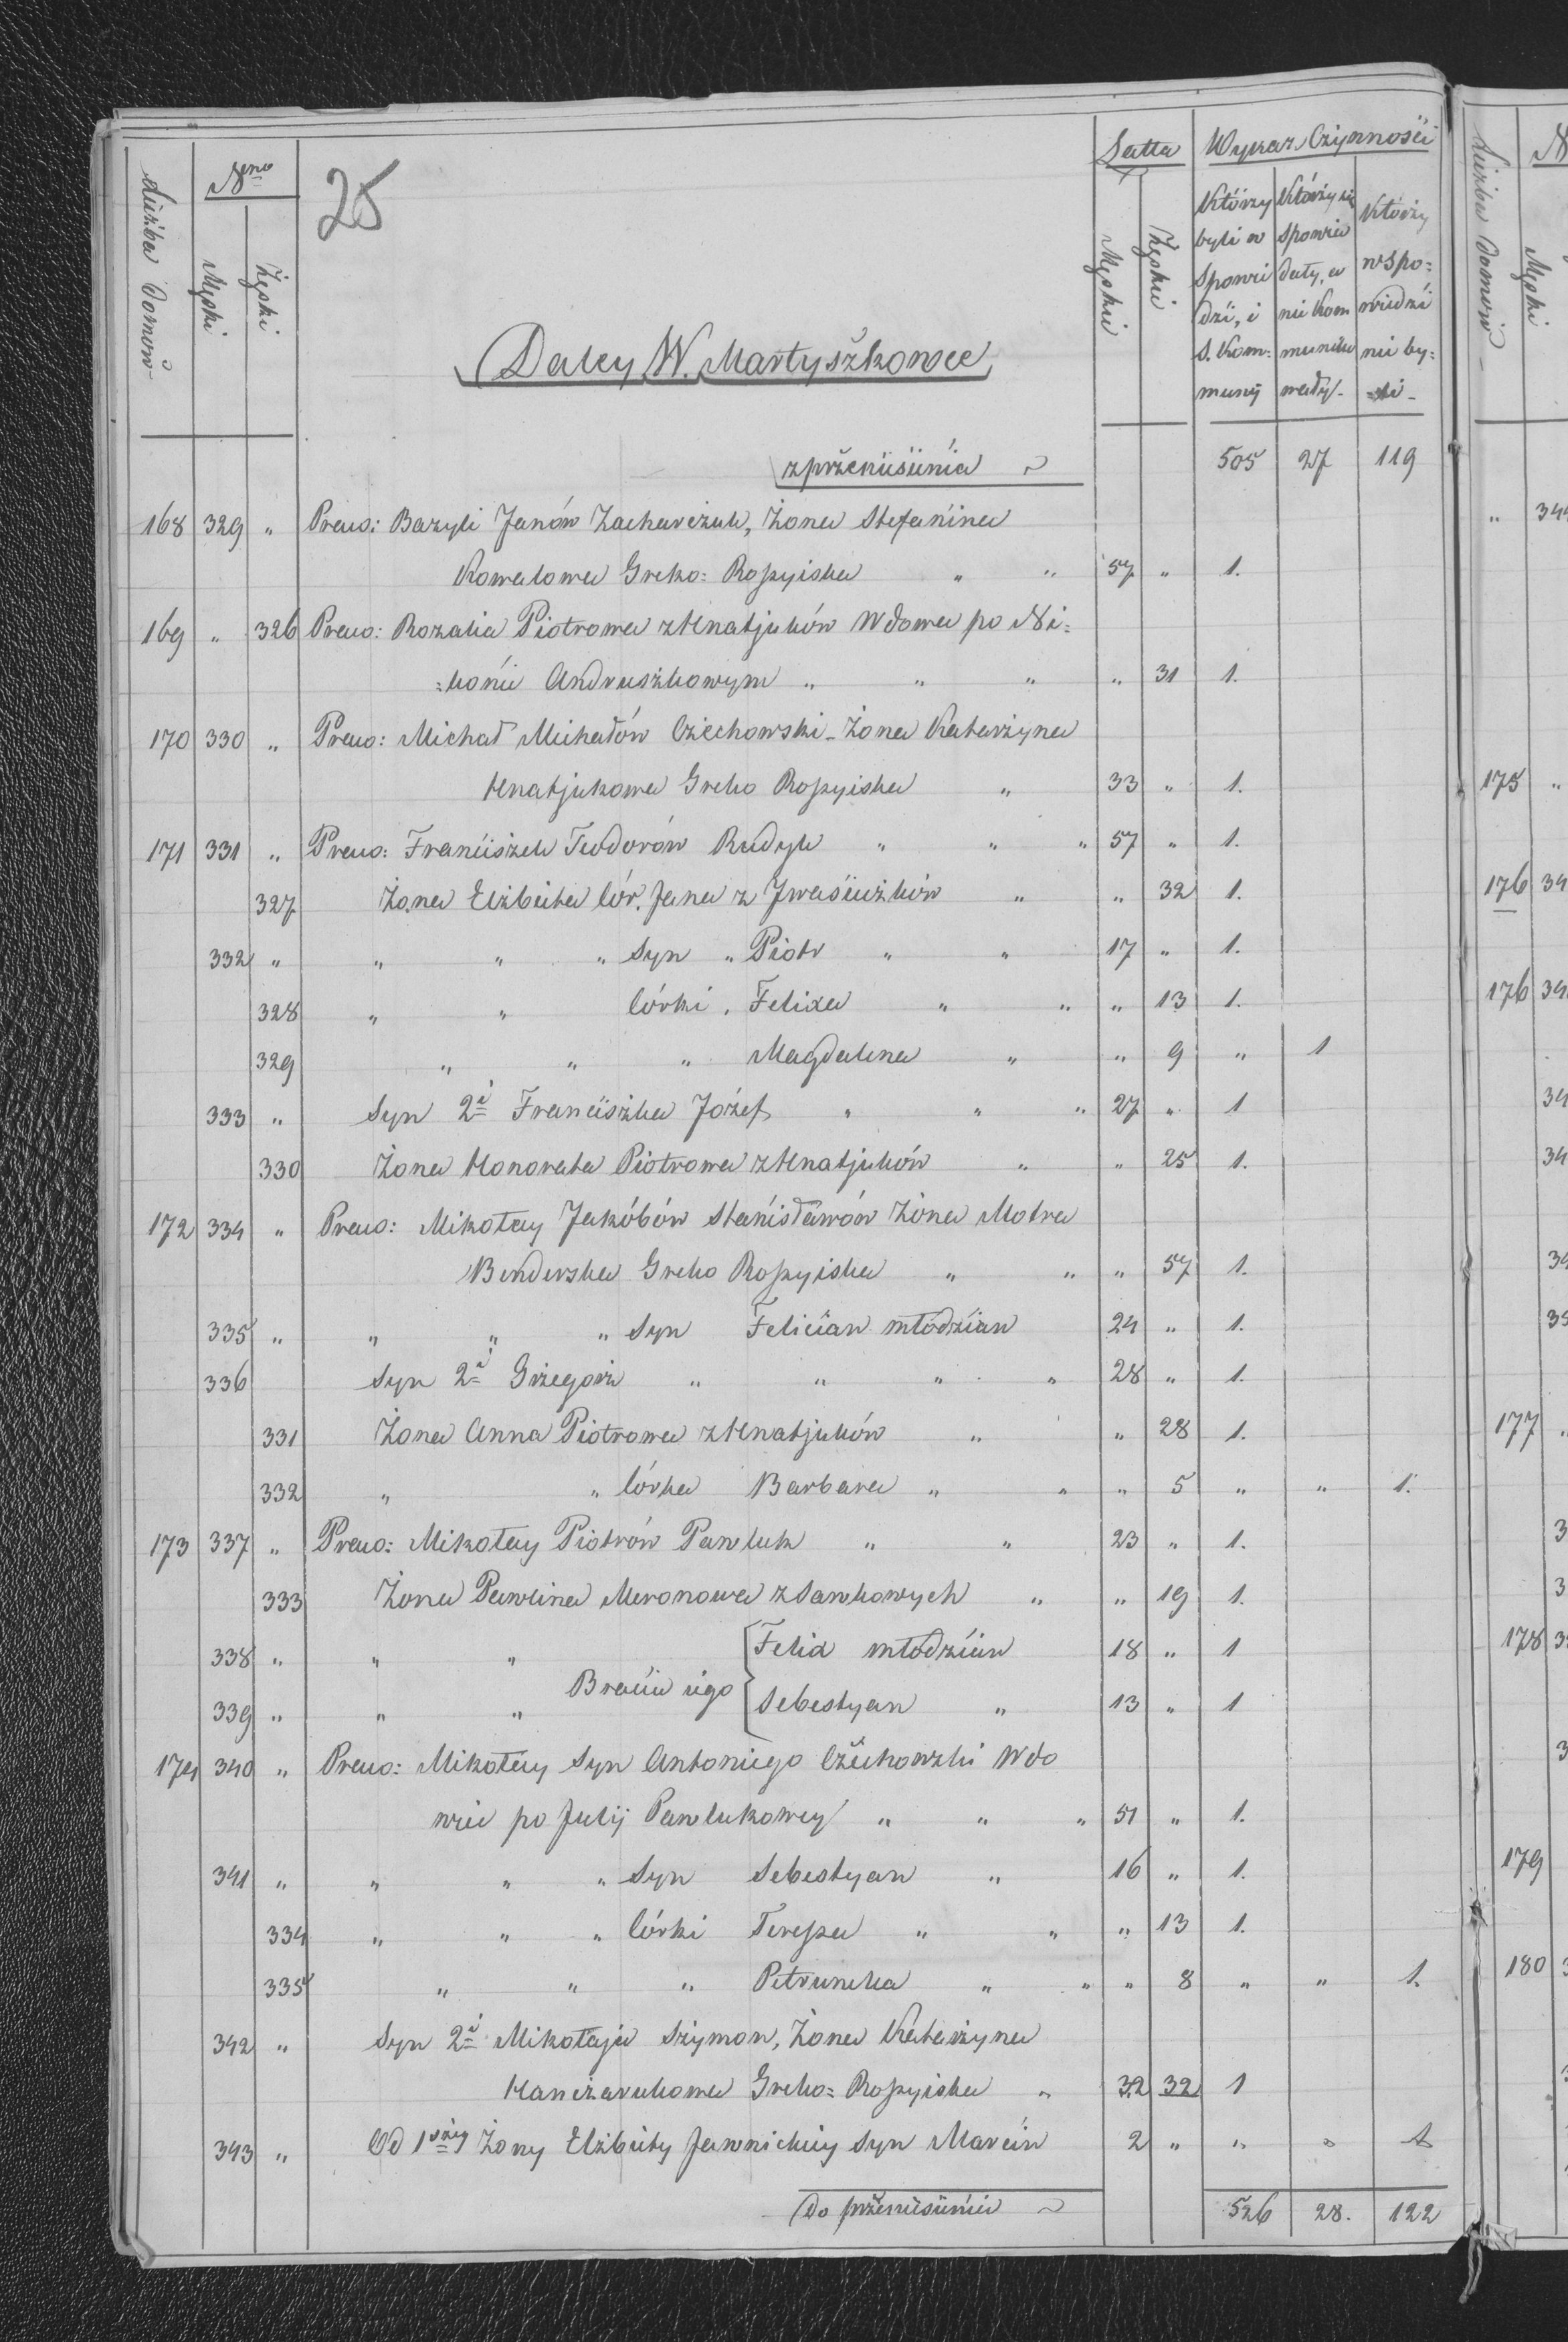 25
Liczba Domów
Nro
Męski
Żęski
Latta
Męskie
Żęskie
Wykaz Czÿnnośći
Którzy byli u Spowiedzi, i S. Kommunÿ
Którzy się spowiadały, a nie Kommunikowały
Którzy w spo= wiedzi nie by= =li
Daley W. Martyszkowce
z przeniesienia 505 27 119
168 329 " Praco: Bazyli Janów Zacharczuk, Żona Stefanina
Kowalowa Greko: Rossyiska " " 57 " 1.
169 " 326 Praco: Rozalia Piotrowa z Hnatjuków Wdowa po Ni=
=konie Andruszkowym " " " " 31 1.
170 330 " Praco: Michał Michałów Czechowski Żona Katarzyna
Hnatjukowa Greko Rossyiska " 33 " 1.
171 331 " Praco: Franciszek Teodorów Rudyk " " " 57 " 1.
327 Żona Elżbieta Cór. Jana z Jwasiuzków " " 32 1.
332 " " " " Syn " Piotr " " 17 " 1.
328 " " Córki . Felixa " " " 13 1.
329 " " " Magdalena " " 9 " 1
333 " Syn 2i Franciszka Józef " " " 27 " 1
330 Żona Honorata Piotrowa z Hnatjuków " " 25 1.
172 334 " Praco: Mikołay Jakóbów Stanisławów Żona Motra
Benderska Greko Rossyiska " " " 57 1.
335 " " " " Syn Felician młodzian 24 " 1.
336 Syn 2i Grzegorz " " " " 28 " 1.
331 Żona Anna Piotrowa z Hnatjuków " " 28 1.
332 " " Córka Barbara " " " 5 " " 1.
173 337 " Praco: Mikołay Piotrów Pawluk " " 23 " 1.
333 Żona Pawlina Meronowa z Sawkowych " " 19 1.
338 " " " Felix młodzian 18 " 1
Bracia iego
339 " " " Sebestyan " 13 " 1
174 340 " Praco: Mikołay Syn Antoniego Czechowski Wdo
wiec po Julij Pawlukowey " " " 51 " 1.
341 " " " " Syn Sebestyan " 16 " 1.
334 " " " Córki Teressa " " " 13 1.
335 " " " Petrunela " " " 8 " " 1.
342 " Syn 2i Mikołaja Szymon, Żona Katarzyna
Hanczarukowa Greko= Rossyiska " 32 32 1
343 " Od 1szey Żony Elżbiety Jawnickiey Syn Marcin 2 " " " 1
Do przeniesienia 526 28. 122
Liczba Domów
Męski
175
176
176
177
178
179
180